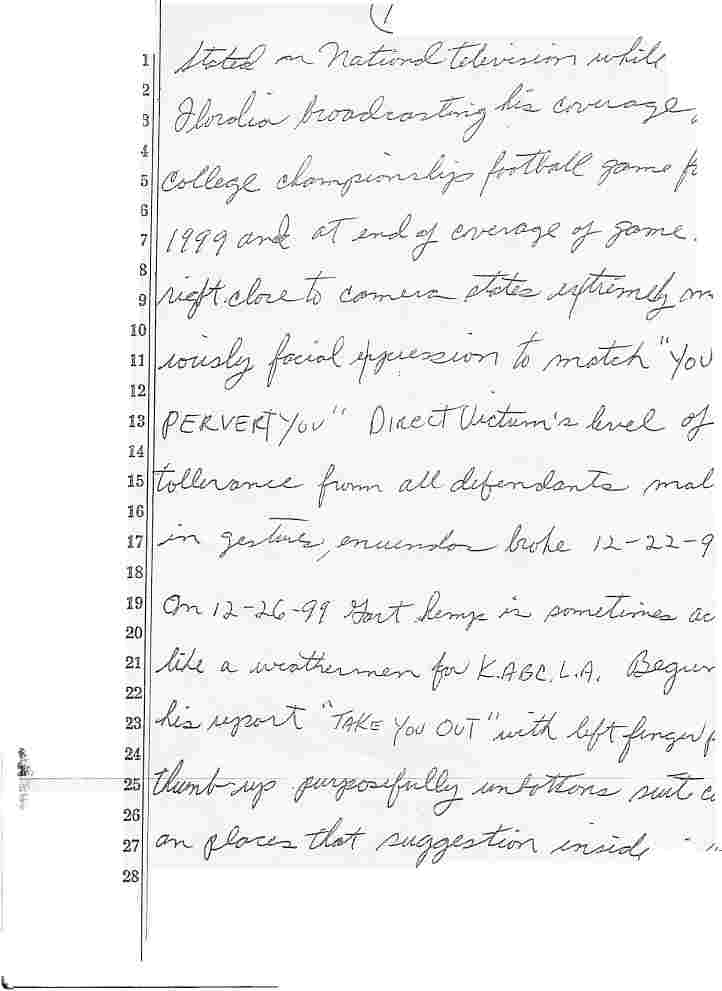 1
1 Stated on National television while
2
3 Flordia broadcasting his coverage,
4
5 College championships football game
6
7 1999 and at end of coverage of game.
8
9 right close to camera states extremely
10
11 iously facial expression to match "YOU
12
13 PERVERT YOU" DIRECT Victum's level of
14
15 tollerance from all defendants mal
16
17 in gestures, enuendos broke 12-22-9
18
19 On 12-26-99 is sometimes ac
20
21 like a weathermen for K.ABC. L.A. Begun
22
23 his report "TAKE YOU OUT" with left finger
24
25 thumb-up purposefully unbottons suit
26
27 an places that suggestion inside
28